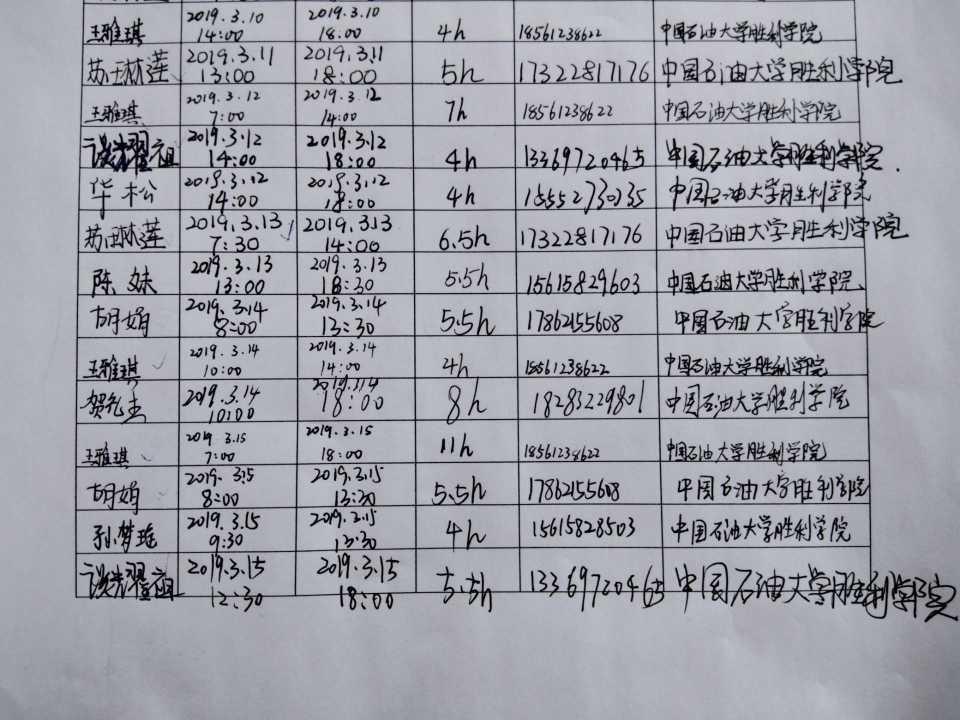 王雅琪 2019.3.10 14:00 2019.3.10 18:00 4h 18561238622 中国石油大学胜利学院
苏琳莲 2019.3.11 13:00 2019.3.11 18:00 5h 17322817176 中国石油大学胜利学院
王雅琪 2019.3.12 7:00 2019.3.12 14:00 7h 18561238622 中国石油大学胜利学院
谈耀祖 2019.3.12 14:00 2019.3.12 18:00 4h 13369720465 中国石油大学胜利学院.
华松 2019.3.12 14:00 2019.3.12 18:00 4h 15552730235 中国石油大学胜利学院
苏琳莲 2019.3.13 7:30 2019.3.13 14:00 6.5h 17322817176 中国石油大学胜利学院
陈妹 2019.3.13 13:00 2019.3.13 18:30 5.5h 15615829603 中国石油大学胜利学院
胡娟 2019.3.14 8:00 2019.3.14 13:30 5.5h 17862155608 中国石油大学胜利学院
王雅琪 2019.3.14 10:00 2019.3.14 14:00 4h 18561238622 中国石油大学胜利学院
贺先圭 2019.3.14 10:00 18:00 8h 18283229801 中国石油大学胜利学院
王雅琪 2019 3.15 7:00 2019.3.15 18:00 11h 18561238622 中国石油大学胜利学院
胡娟 2019. 3.15 8:00 2019.3.15 13:30 5.5h 17862155608 中国石油大学胜利学院
孙梦瑶 2019.3.15 9:30 2019.3.15 13:30 4h 15615828503 中国石油大学胜利学院
谈耀祖 2019.3.15 12:30 2019.3.15 18:00 5.5h 13369720465 中国石油大学胜利学院